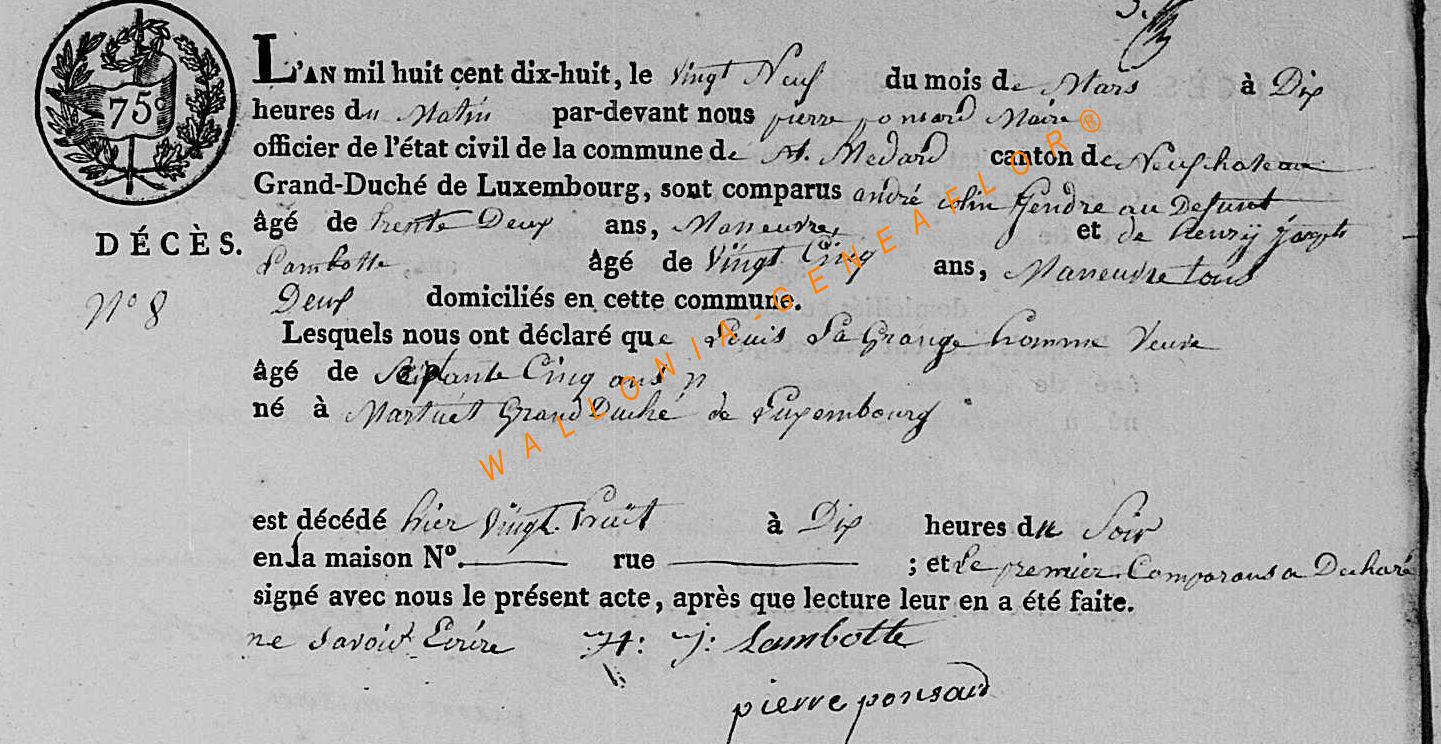 75c
L'AN mil huit cent dix-huit, le vingt Neuf du mois de Mars à Dix
heures du Matin par-devant nous pierre ponsard Maire
officier de l'état civil de la commune de st. Medard canton de Neufchateau
Grand-Duché de Luxembourg, sont comparus andré colin gendre au Defunt
âgé de trente Deux ans, Maneuvre, et de henry joseph
DÉCÈS.
Lambotte, âgé de Vingt Cinq ans, Maneuvre tous
N° 8
Deux domiciliés en cette commune.
Lesquels nous ont déclaré que Louis La Grange homme Veuve
âgé de Septante Cinq ans
né à Martuét Grand Duché de Luxembourg
est décédé hier vingt huit à Dix heures du Soir
en sa maison N°. rue ; et Le premier Comparans a Declaré
signé avec nous le présent acte, après que lecture leur en a été faite.
ne savoir Ecrire H: J: Lambotte
pierre ponsard
WALLONIA-GENEAFLOR®